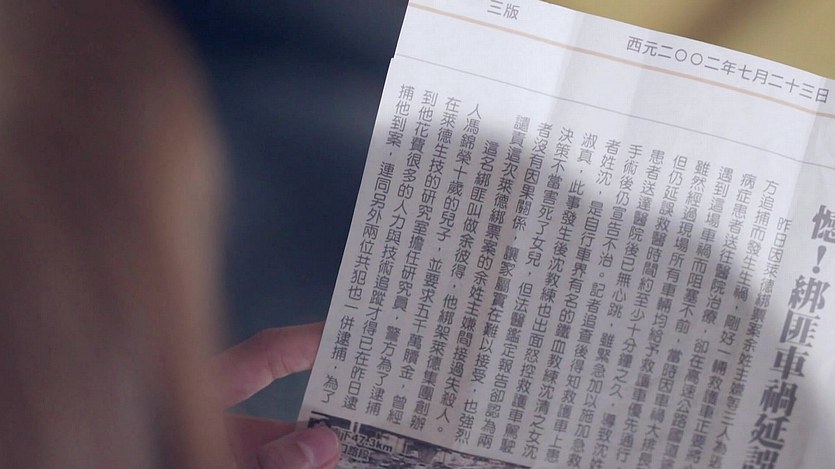 三版
西元二〇〇二年七月二十三日
憾！綁匪車禍延誤
昨日因萊德綁票案余姓主嫌等三人為
方追捕而發生車禍，剛好一輛救護車正要將
病症患者送往醫院治療，卻在高速公路國道
遇到這場車禍而阻塞不前，當時因車禍大排長
雖然經過現場所有車輛均給予救護車優先通行
但仍延誤救醫時間約至少十分鐘之久，導致沈
患者送達醫院後已無心跳，雖緊急加以施加急救
手術後仍宣告不治。記者追查後得知救護車上患
者姓沈，是自行車界有名的鐵血教練沈清之女沈
淑真，此事發生後沈教練也出面怒控救護車駕駛
決策不當害死了女兒，但法醫鑑定報告卻認為兩
者沒有因果關係，讓家屬實在難以接受，也強烈
譴責這次萊德綁票案的余姓主嫌間接過失殺人。
這名綁匪叫做余彼得，他綁架萊德集團創辦
人馮錦榮十歲的兒子，並要求五千萬贖金，曾經
在萊德生技的研究室擔任研究員，警方為了逮捕
到他花費很多的人力與技術追蹤才得已在昨日逮
捕他到案，連同另外兩位共犯也一併逮捕，為了
47.3km